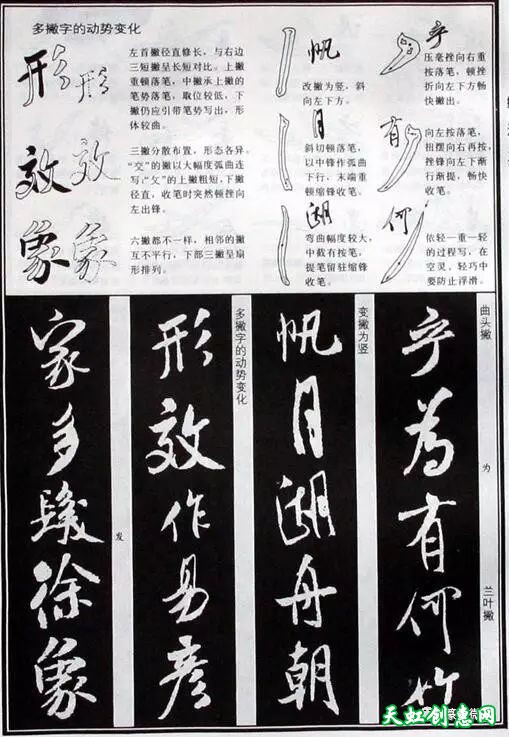 多撇字的动势变化
形
左首撇径直修长，与右边
三短撇呈长短对比。上撇
重顿落笔，中撇承上撇的
笔势落笔，取位较低，下
撇仍应引带笔势写出，形
体较曲。
效
三撇分散布置，形态各异。
“交”的撇以大幅度弧曲连
写；“攵”的上撇粗短，下撇
径直，收笔时突然顿挫向
左出锋。
象
六撇都不一样，相邻的撇
互不平行，下部三撇呈扇
形排列。
帆
改撇为竖，斜
向左下方。
月
斜切顿落笔，
以中锋作弧曲
下行，末端重
顿缩锋收笔。
湖
弯曲幅度较大，
中截有按笔，
提笔留驻缩锋
收笔。
乎
压毫挫向右重
按落笔，顿挫
折向左下方畅
快撇出。
有
向左按落笔，
扭摆向右再按，
挫锋向左下渐
行渐提，畅快
收笔。
何
依轻—重—轻
的过程写，在
空灵、轻巧中
要防止浮滑。
曲头撇
为
兰叶撇
乎为有何竹
变撇为竖
帆月湖舟朝
多撇字的动势变化
形效作易彦
发
家多发徐象
天虹创意网